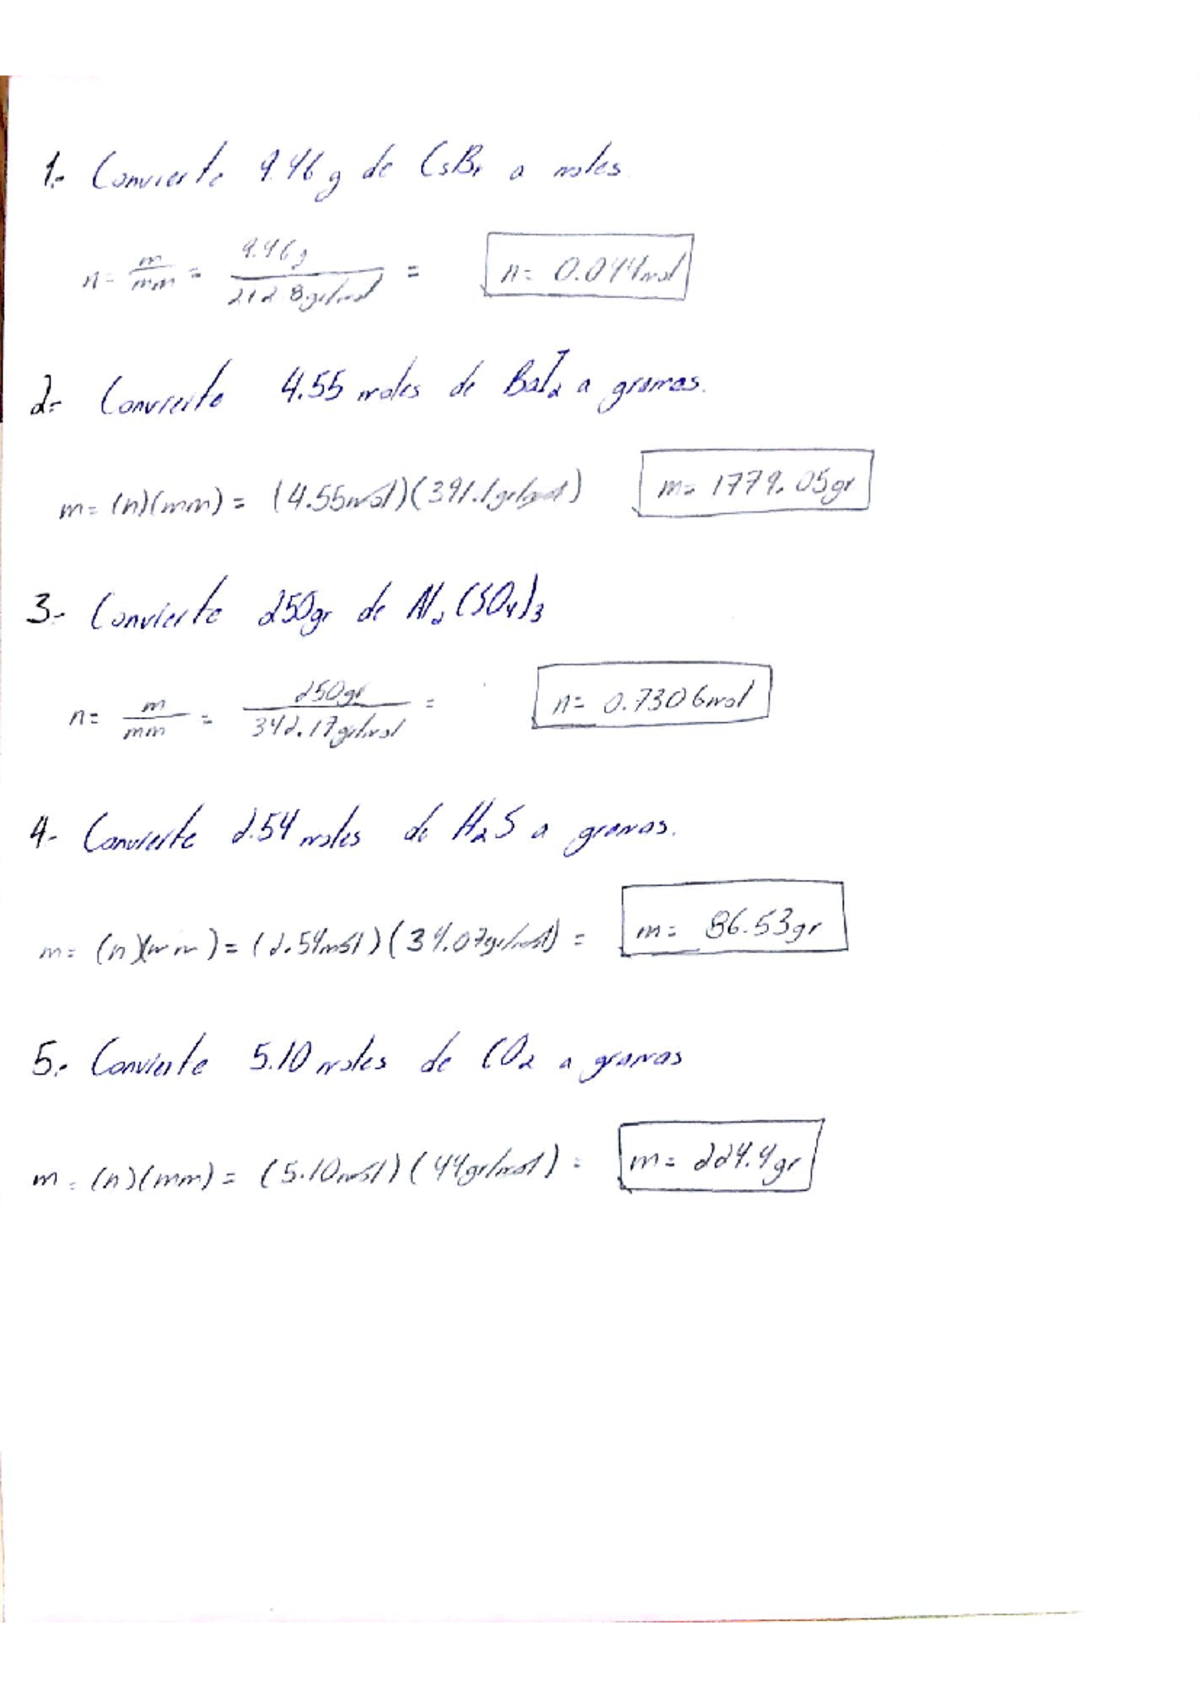 1.- Convierte 9.46g de CsBr a moles.
n = m/mm = 9.46g / 212.8gr/mol = n = 0.044mol
2.- Convierte 4.55 moles de BaI₂ a gramos.
m = (n)(mm) = (4.55mol)(391.1gr/mol) m = 1779.05gr
3.- Convierte 250gr de Al₂(SO₄)₃
n = m/mm = 250gr / 342.17gr/mol = n = 0.7306mol
4.- Convierte 2.54 moles de H₂S a gramos.
m = (n)(mm) = (2.54mol)(34.07gr/mol) = m = 86.53gr
5.- Convierte 5.10 moles de CO₂ a gramos
m = (n)(mm) = (5.10mol)(44gr/mol) = m = 224.4gr